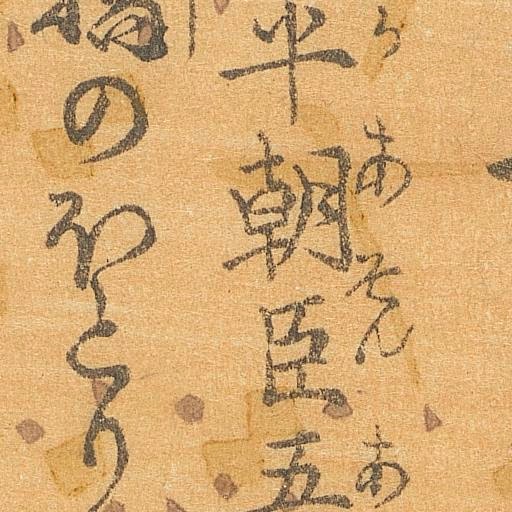 らあそんあ
平朝臣五
のほとり